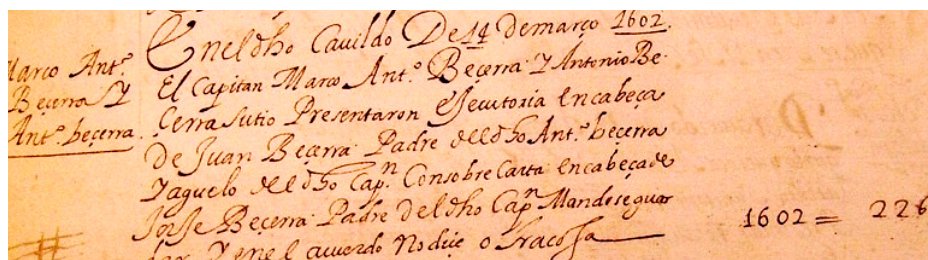 Marco Ant.º
Beçerra Y
Ant.º beçerra
En el dho Cavildo De 14 de março 1602.
El Capitan Marco Ant.º Beçerra Y Antonio Be
Cerra su tio Presentaron executoria En cabeça
De Juan Beçerra Padre del dho Ant.º beçerra
Y aguelo del dho Cap.n Con sobre Carta En cabeça de
Jorje Beçerra Padre del dho Cap.n Mandose guar
dar Y en el acuerdo No diçe otra cosa
1602 = 226